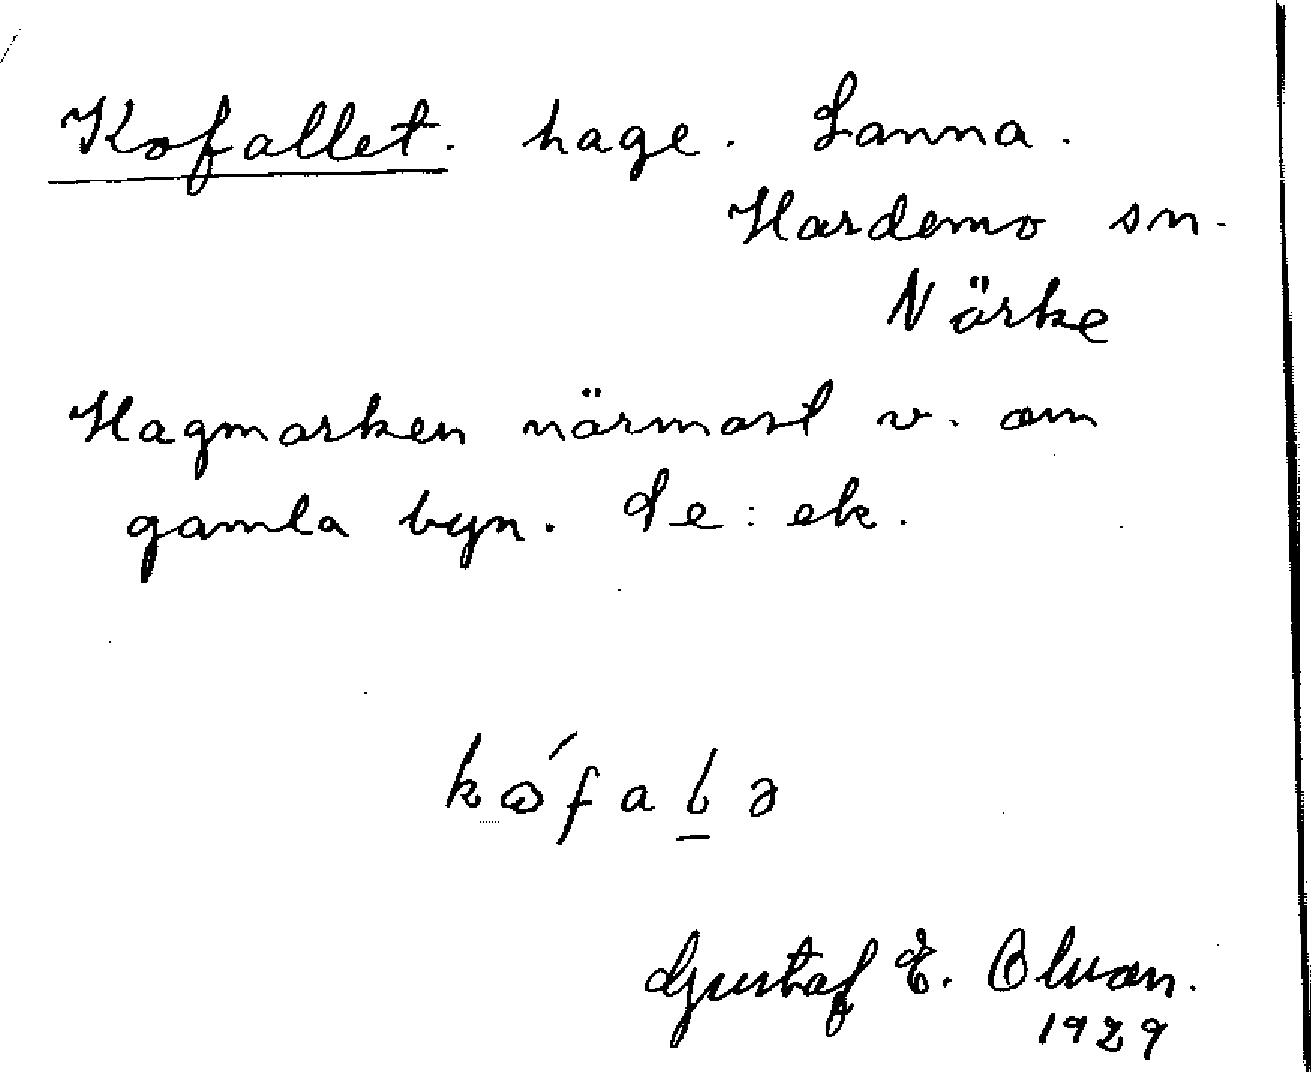 Kofallet. hage. Lanna.
Hardemo sn.
Närke
Hagmarken närmast v. om
gamla byn. Se: ek.
Gustaf E. Olsson.
1929